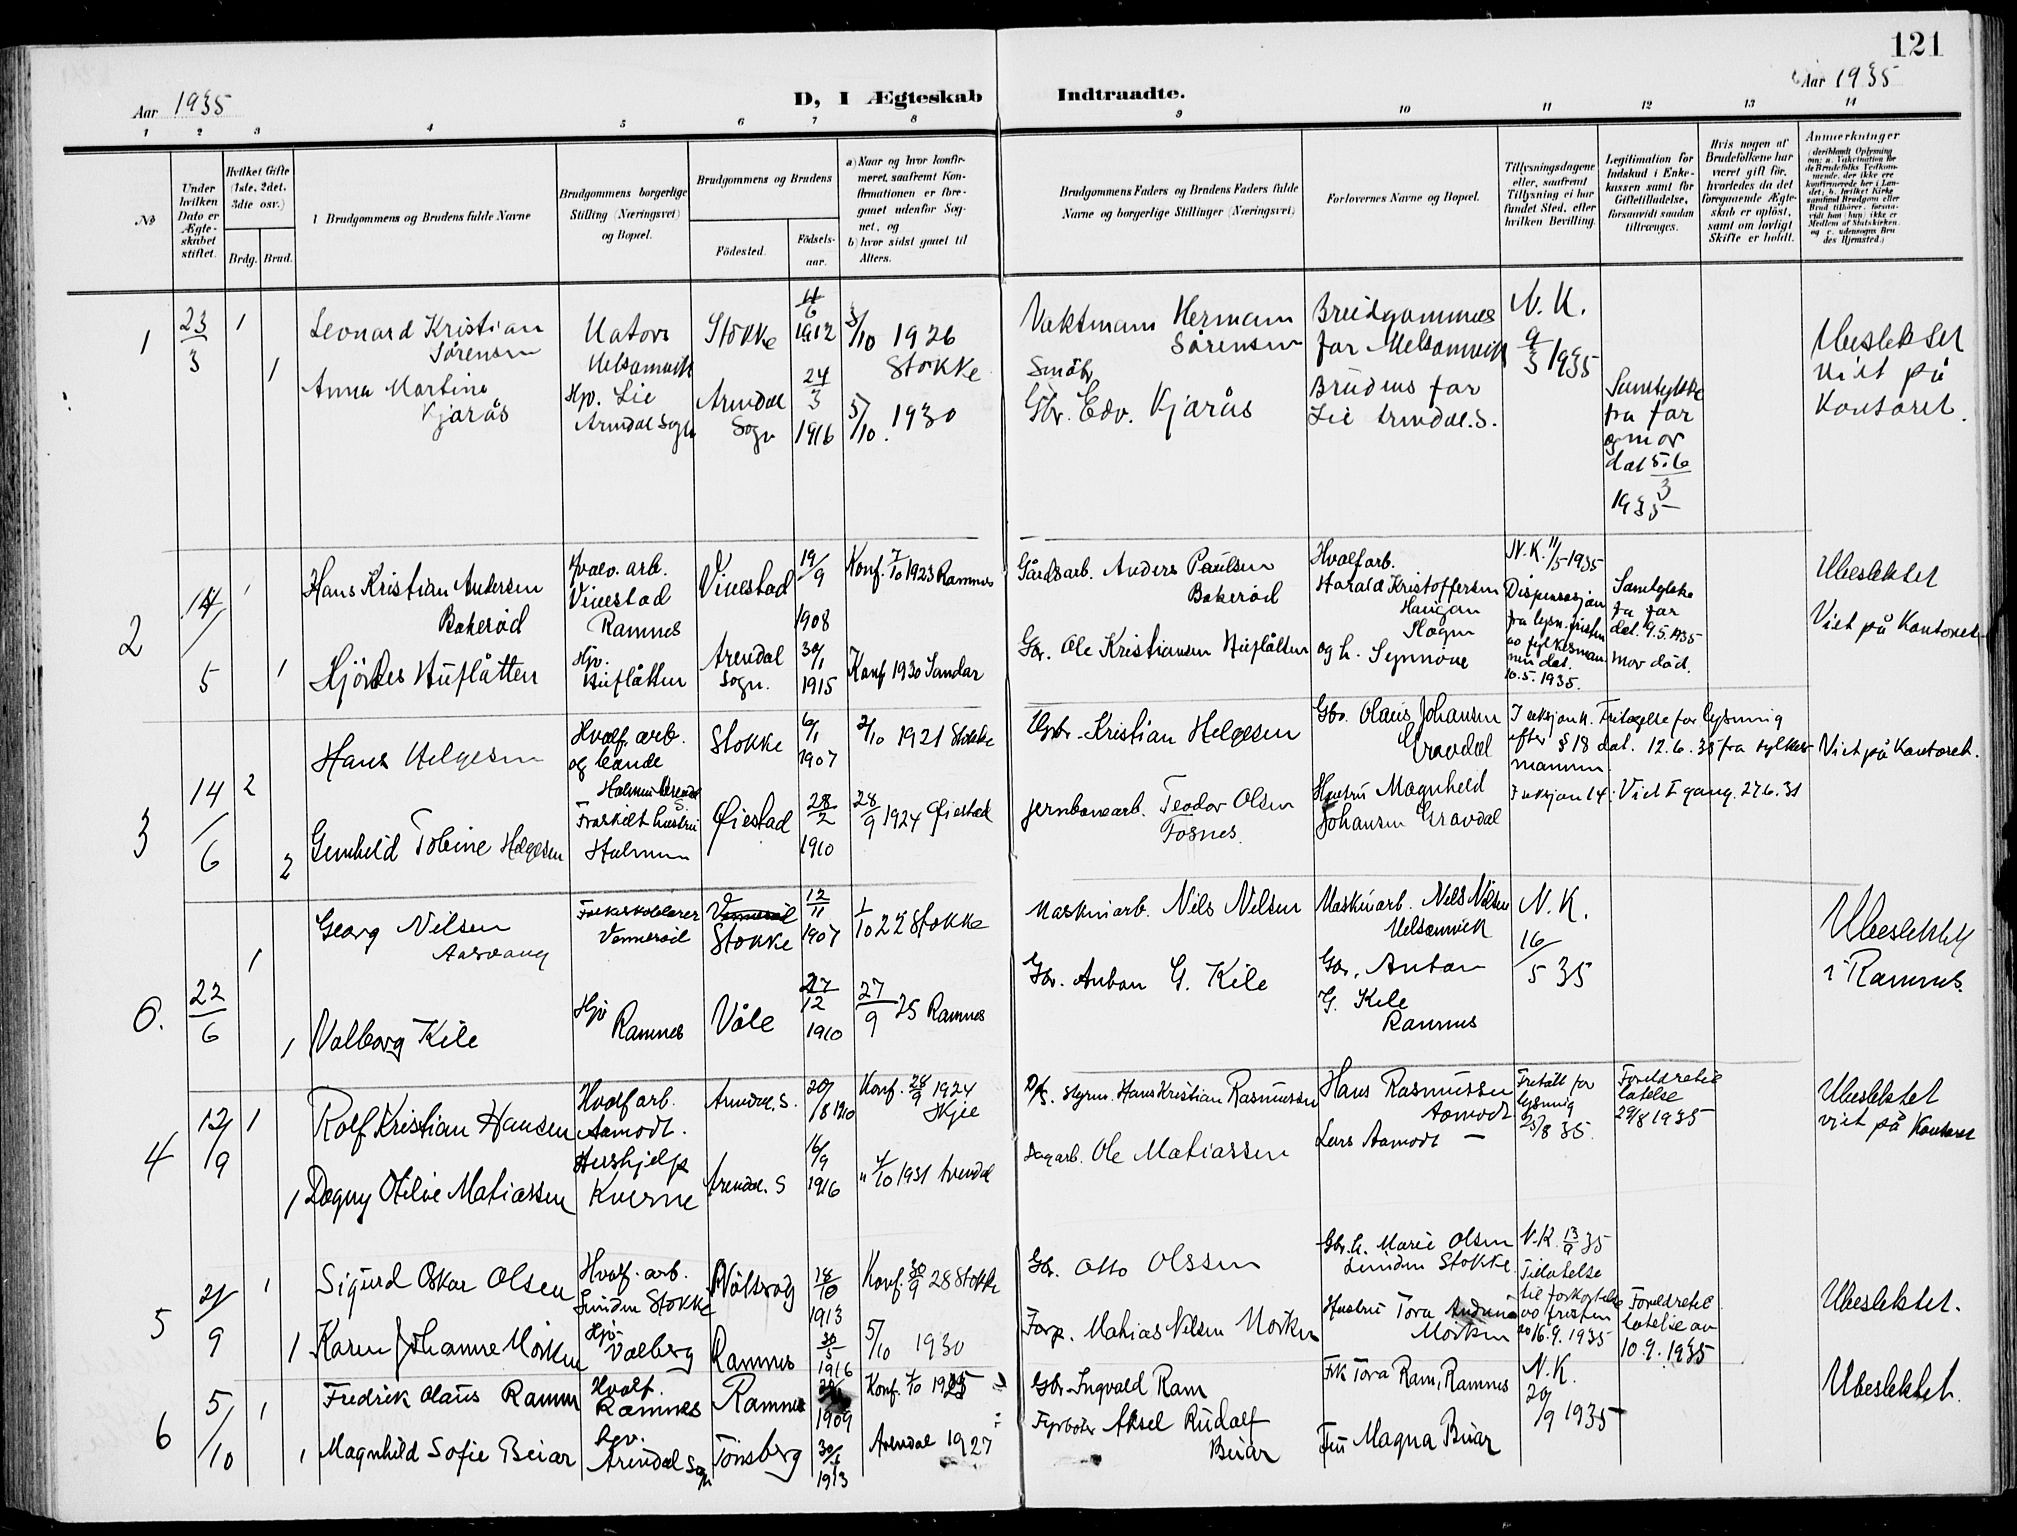 121
Aar 1935
D, I Ægteskab Indtraadte.
Aar 1935
1 2 3 4 5 6 7 8 9 10 11 12 13 14
№
Under hvilken Dato er Ægteskabet stiftet.
Hvilket Gifte (1ste, 2det, 3die osv.)
Brdg. Brud.
Brudgommens og Brudens fulde Navne
Brudgommens borgerlige Stilling (Næringsvei) og Bopæl.
Brudgommens og Brudens
Födested.
Födsels-aar.
a) Naar og hvor konfirmeret, saafremt Konfirmationen er foregaaet udenfor Sognet, og
b) hvor sidst gaaet til Alters.
Brudgommens Faders og Brudens Faders fulde Navne og borgerlige Stillinger (Næringsvei)
Forlovernes Navne og Bopæl.
Tillysningsdagene eller, saafremt Tillysning ei har fundet Sted, efter hvilken Bevilling.
Legitimation for Indskud i Enkekassen samt for Giftetilladelse, forsaavidt saadan tiltrænges.
Hvis nogen af Brudefolkene har været gift för, hvorledes da det foregaaende Ægteskab er oplöst, samt om lovligt Skifte er holdt.
Anmerkninger
1
23/3
1
Leonard Kristian Sörensen
Matros
Melsomvik
Stokke
11/6 1912
3/10 1926 Stokke
Vaktmann Hermann Sörensen
Brudgommens far Melsomvik
N. K. 9/3 1935
Ubeslektet
Viet på Kontoret.
1
Anna Martine Kjærås
Hjv. Lie
Arendal Sogn
Arendal Sogn
24/3 1916
5/10 1930
Småbr.
Gbr. Edv. Kjærås
Brudens far
Lie Arendal. S.
Samtykke fra far og mor dat 5.6/3 1935
2
14/5
1
Hans Kristian Andersen Bakeröd
Hvalv. arb.
Vivestad
Ramnes
Vivestad
19/9 1908
Konf. 7/10 1923 Ramnes
Gårdsarb. Anders Paulsen Bakeröd
Hvalfarb.
Harald Kristoffersen
Haugan
Slagen
N. K. 11/5 1935
Dispensasjon fra lysn. fristen av fylkesmannen dat. 10.5.1935.
Samtykke fra far dat. 9.5.1935
mor död.
Ubeslektet
Viet på Kontoret
1
Hjördes Huflåtten
Hjv.
Huflåtten
Arendal Sogn.
30/1 1915
Konf 1930 Sandar
Gbr. Ole Kristiansen Huflåtten
og h. Synnöve
3
14/6
2
Hans Helgesen
Hvalf. arb.
Stokke
6/1 1907
2/10 1921 Stokke
Gbr. Kristian Helgesen
Gbr. Olaus Johansen Gravdal
Fritagelse for lysning efter § 18 dat. 12.6.35 fra fylkesmannen
Viet på Kontoret.
2
Gunhild Tobine Helgesen
Fraskilt hustru
Holmen
Øiestad
28/2 1910
28/9 1924 Øiestad
Jernbanearb. Teodor Olsen Fosnes.
Hustru Magnhild Johansen Gravdal
Viet I gang. 27.6.31
6.
22/6
1
Georg Nilsen Aasvang
Folkeskolelærer
Vennerød
Stokke
12/11 1907
1/10 22 Stokke
Maskinarb. Nils Nilsen
Maskinarb. Nils Nilsen
Melsomvik
N. K.
16/5 35
Ubeslektet
i Ramnes.
1
Valborg Kile
Hjv
Ramnes
Våle
27/12 1910
27/9 25 Ramnes
Gbr. Anton G. Kile
Gbr. Anton G. Kile
Ramnes
4
12/9
1
Rolf Kristian Hansen
Hvalfarb.
Aamodt.
Arendal. S.
20/8 1910
Konf. 28/9 1924 Skjee
Styrm. Hans Kristian Rasmussen
Hans Rasmussen Aamodt
Fritatt for lysning 25/8 35.
Foreldretillatelse 29/8 1935
Ubeslektet
viet på Kontoret
1
Dagny Otilie Matiassen
Hushjelp
Kverne
Arendal. S
16/9 1916
" 4/10 1931 Arendal
Dagarb. Ole Matiassen
Lars Aamodt —
5
21/9
1
Sigurd Oskar Olsen
Hvalf. arb.
Linden Stokke
Nötteröy
18/10 1913
Konf. 30/9 28 Stokke
Gbr. Otto Olssen
Gbr. h. Marie Olsen
Linden Stokke
N. K. 13/9 35
Tillatelse til forkortelse av fristen 16.9.1935
Ubeslektet.
1
Karen Johanne Mörken
Hjv
Valberg
Ramnes
30/5 1916
5/10 1930
Forp. Mathias Nilsen Mörken
Hustru Tora Mörken
Foreldretillatelse av 10.9.1935
6
5/10
1
Fredrik Olaus Ramm
Hvalf.
Ramnes
Ramnes
1909
Konf. 4/10 1925
Gbr Ingvald Ram
Frk Tora Ram, Ramnes
N. K.
20/9 1935
Ubeslektet.
1
Magnhild Sofie Beiar
Arendal Sogn
Tönsberg
1913
Arendal 1927
Fyrböter Aksel Rudolf Beiar
Fru Magna Beiar